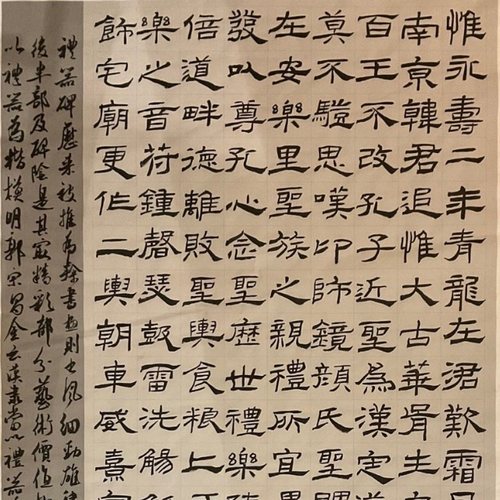 惟永壽二年青龍在涒歎霜月
南京韓君追惟大古華胥生
百王不改孔子近聖為漢定道
莫不驥思嘆卬師鏡顏氏
在安樂里聖族之親禮所宜異
發以尊孔心念聖歷世禮樂
倍道畔德離敗聖輿食糧亡
樂之音苻鍾磬瑟鼓雷洗觴
飾宅廟更作二輿朝車威熹
禮器碑歷來被推為隸書極則書風細勁雄健
後半部及碑陰是其最精彩部分藝術價值
以禮器為楷模明郭宗昌金石史云漢隸當以禮器